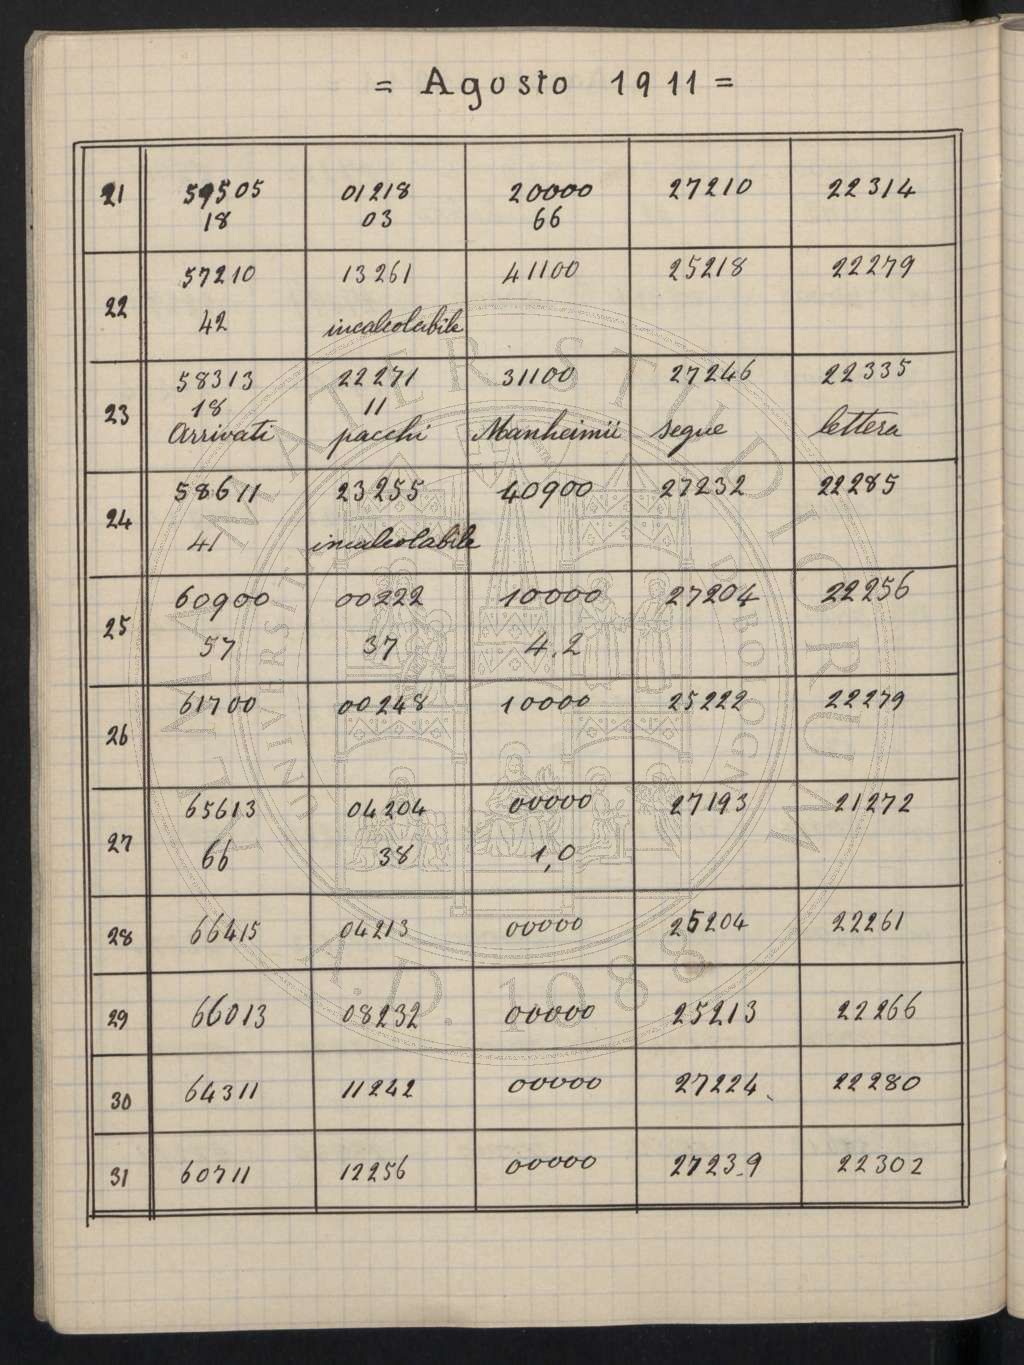 = Agosto 1911 =
21 59505 01218 20000 27210 22314
18 03 66
22 57210 13261 41100 25218 22279
42 incalcolabile
23 58313 22271 31100 27246 22335
18 11
Arrivati pacchi Manheimii segue lettera
24 58611 23255 40900 27232 22285
41 incalcolabile
25 60900 00222 10000 27204 22256
57 37 4.2
26 61700 00248 10000 25222 22279
27 65613 04204 00000 27193 21272
66 38 1,0
28 66415 04213 00000 25204 22261
29 66013 08232 00000 25213 22266
30 64311 11242 00000 27224 22280
31 60711 12256 00000 27239 22302
ALMA MATER STUDIORUM
A.D. 1088